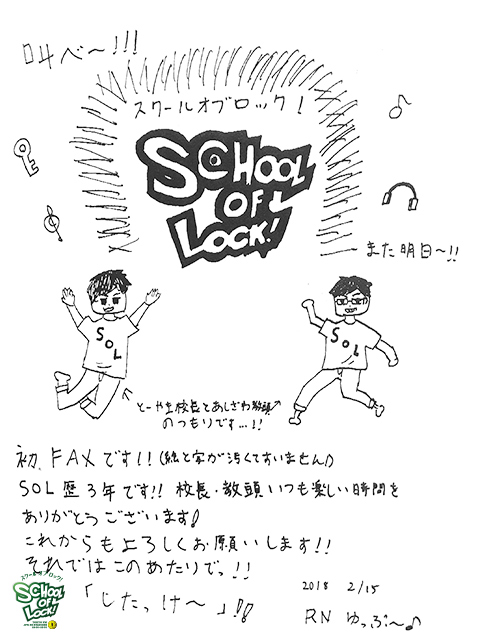 叫べ～!!!
スクールオブロック!
SCHOOL
OF
LOCK!
また明日～!!
SOL
SOL
とーやま校長とあしざわ教頭
のつもりです…!!
初、FAXです!!(絵と字が汚くてすいません!)
SOL歴3年です!! 校長・教頭いつも楽しい時間を
ありがとうございます!
これからもよろしくお願いします!!
それではこのあたりでっ!!
「じたっけ～」!!
2018 2/15
RN ゆっぷ～♪
スクールオブロック!
SCHOOL
OF
LOCK!